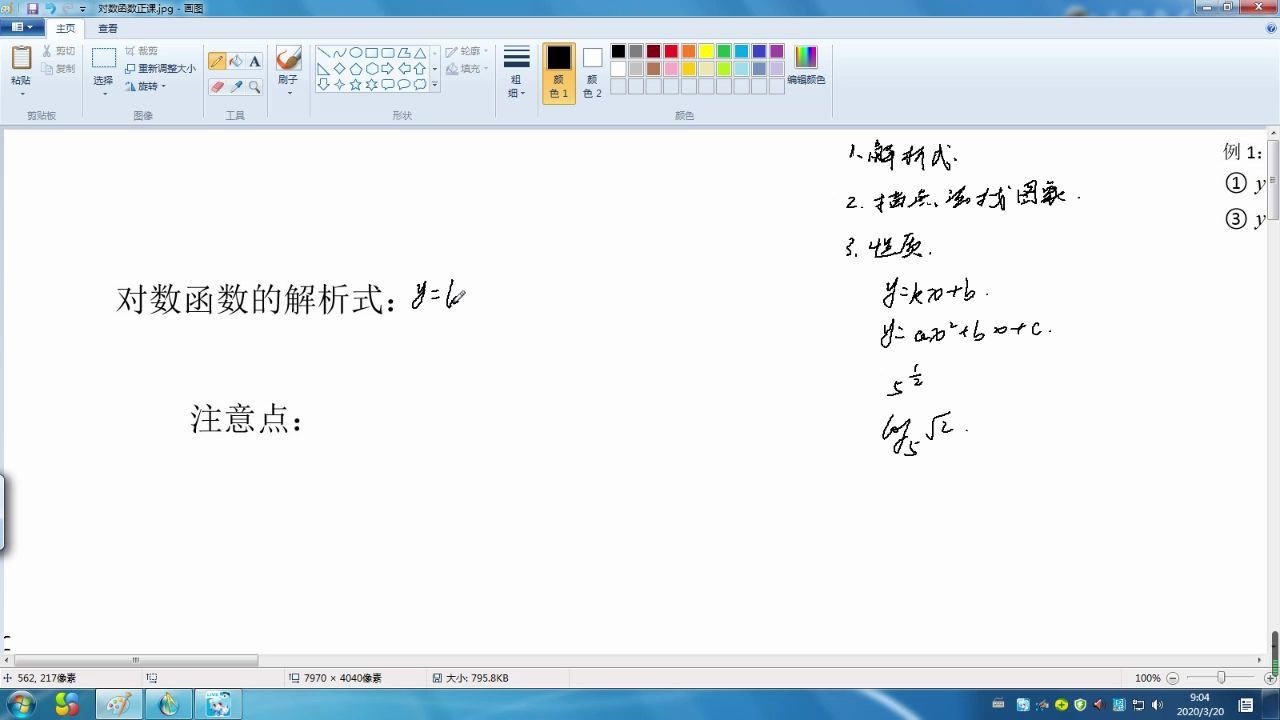 对数函数正课.jpg - 画图
主页 查看
粘贴 剪切 复制 选择 裁剪 重新调整大小 旋转 A 刷子 轮廓 填充 粗细 颜色 1 颜色 2 编辑颜色
剪贴板 图像 工具 形状 颜色
1. 解析式.
例 1：
2. 描点法找图象.
① y
③ y
3. 性质.
对数函数的解析式：y=lo
y=kx+b.
y=ax²+bx+c.
5^{1/2}
注意点：
log₅√2.
562, 217像素 7970 × 4040像素 大小: 795.8KB 100%
9:04
2020/3/20